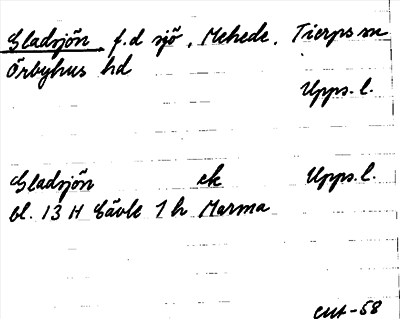 Gladsjön f.d sjö, Mehede. Tierps sn
Örbyhus hd
Upps. l.
Gladsjön ek Upps. l.
bl. 13 H Gävle 1 h Marma
CUA-58